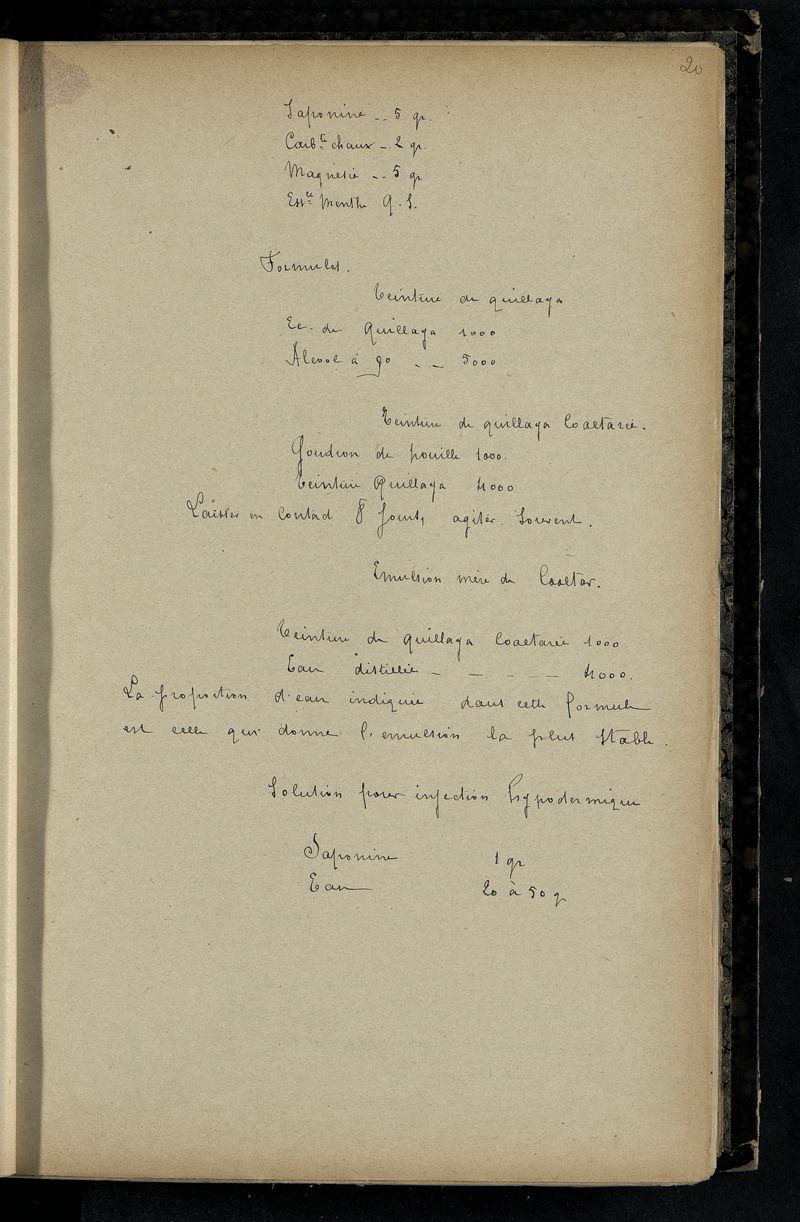 20
Saponine -- 5 gr.
Carb.te chaux - 2 gr.
Magnésie -- 5 gr
Ess.ce Menthe Q.S.
Formules.
Teinture de quillaya
Ec. de Quillaya 1000
Alcool à 90 -- 5000
Teinture de quillaya Coaltarée.
Goudron de houille 1000.
Teinture Quillaya 4000
Laisser en Contact 8 Jours, agiter souvent.
Emulsion mère de Coaltar.
Teinture de quillaya Coaltarée 1000
Eau distillée - - - - - 4000.
La proportion d'eau indiquée dans cette formule
est celle qui donne l'emulsion la plus stable.
Solution pour injection Hypodermique
Saponine 1 gr
Eau 20 à 50 g